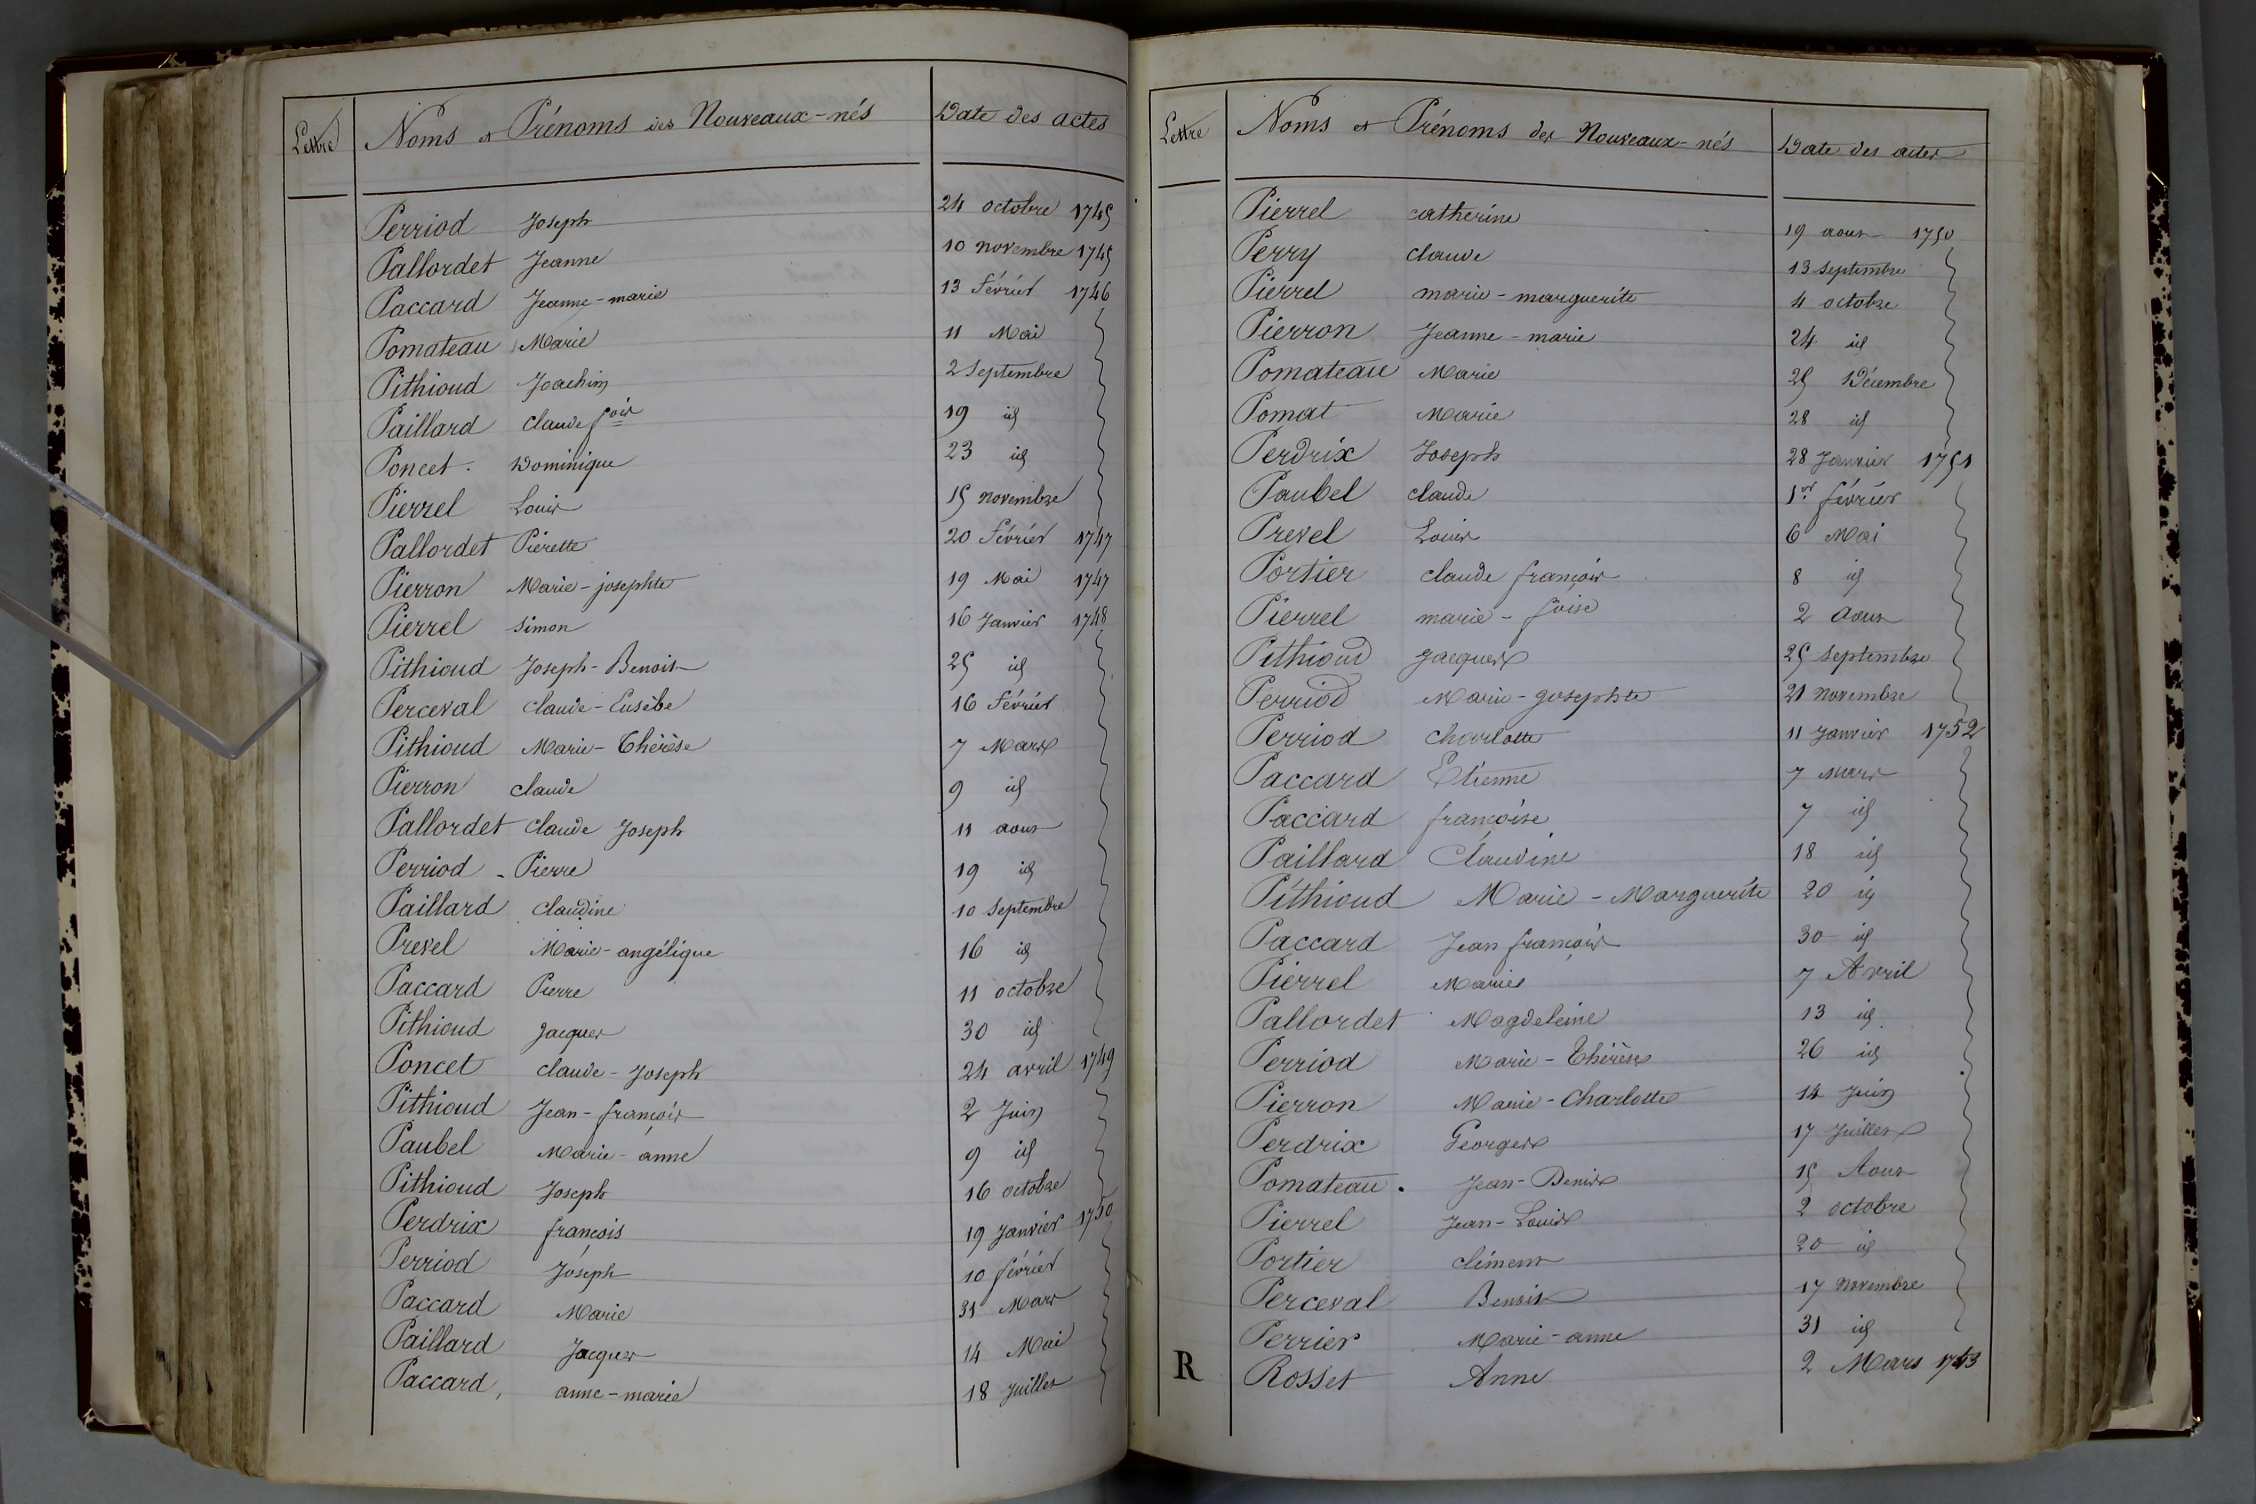 Lettre Noms et Prénoms des Nouveaux-nés Date des actes
Perriod Joseph 24 octobre 1745
Pallordet Jeanne 10 novembre 1745
Paccard Jeanne-marie 13 février 1746
Pomateau Marie 11 Mai
Pithioud Joachim 2 Septembre
Paillard Claude fois 19 id
Poncet. Dominique 23 id
Pierrel Louis 15 novembre
Pallordet Pierette 20 février 1747
Pierron Marie-josephte 19 Mai 1747
Pierrel Simon 16 Janvier 1748
Pithioud Joseph-Benoit 25 id
Perceval Claude-Eusèbe 16 février
Pithioud Marie-Thérèse 7 Mars
Pierron Claude 9 id
Pallordet Claude Joseph 11 aout
Perriod - Pierre 19 id
Paillard Claudine 10 Septembre
Prevel Marie-angélique 16 id
Paccard Pierre 11 octobre
Pithioud Jacques 30 id
Poncet Claude-Joseph 24 avril 1749
Pithioud Jean-françois 2 Juin
Paubel Marie-anne 9 id
Pithioud Joseph 16 octobre
Perdrix françois 19 Janvier 1750
Perriod Joseph 10 février
Paccard Marie 31 Mars
Paillard Jacques 14 Mai
Paccard, anne-marie 18 Juillet
Lettre Noms et Prénoms des Nouveaux-nés Date des actes
Pierrel Catherine 19 aout 1750
Perry Claude 13 Septembre
Pierrel marie-marguerite 4 octobre
Pierron Jeanne-marie 24 id
Pomateau Marie 25 Décembre
Pomat Marie 28 id
Perdrix Joseph 28 Janvier 1751
Paubel Claude 1er février
Prevel Louis 6 Mai
Portier Claude françois 8 id
Pierrel marie-foise 2 Aout
Pithioud Jacques 25 Septembre
Perriod Marie-Josephte 21 Novembre
Perriod Charlotte 11 Janvier 1752
Paccard Etienne 7 Mars
Paccard françoise 7 id
Paillard Claudine 18 id
Pithioud Marie-Marguerite 20 id
Paccard Jean françois 30 id
Pierrel Marie 7 Avril
Pallordet Magdeleine 13 id
Perriod Marie-Thérèse 26 id
Pierron Marie-Charlotte 14 Juin
Perdrix Georges 17 Juillet
Pomateau. Jean-Denis 15 Aout
Pierrel Jean-Louis 2 octobre
Portier Clément 20 id
Perceval Benoit 17 Novembre
Perrier Marie-anne 31 id
R Rosset Anne 2 Mars 1743